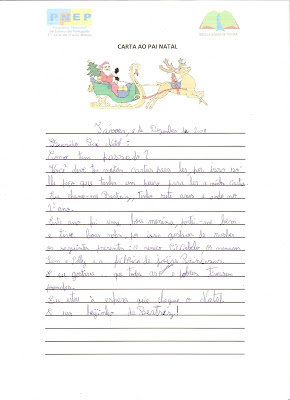 PNEP
CARTA AO PAI NATAL
Távora, 2 de Dezembro de
Querido Pai Natal:
Como tem passado?
Você deve ter muitas cartas para ler, por isso só
lhe peço que tenha um pouco para ler a minha carta.
Eu chamo-me Beatriz, tenho sete anos e ando no
2º ano.
Este ano fui uma boa menina, porte-me bem
e tive boas notas por isso gostava de receber
os seguintes presentes: o
e a fábrica de
E eu gostava que todos os pobres tivessem
prendas.
Eu estou à espera que chegue o Natal.
E um beijinho da Beatriz!